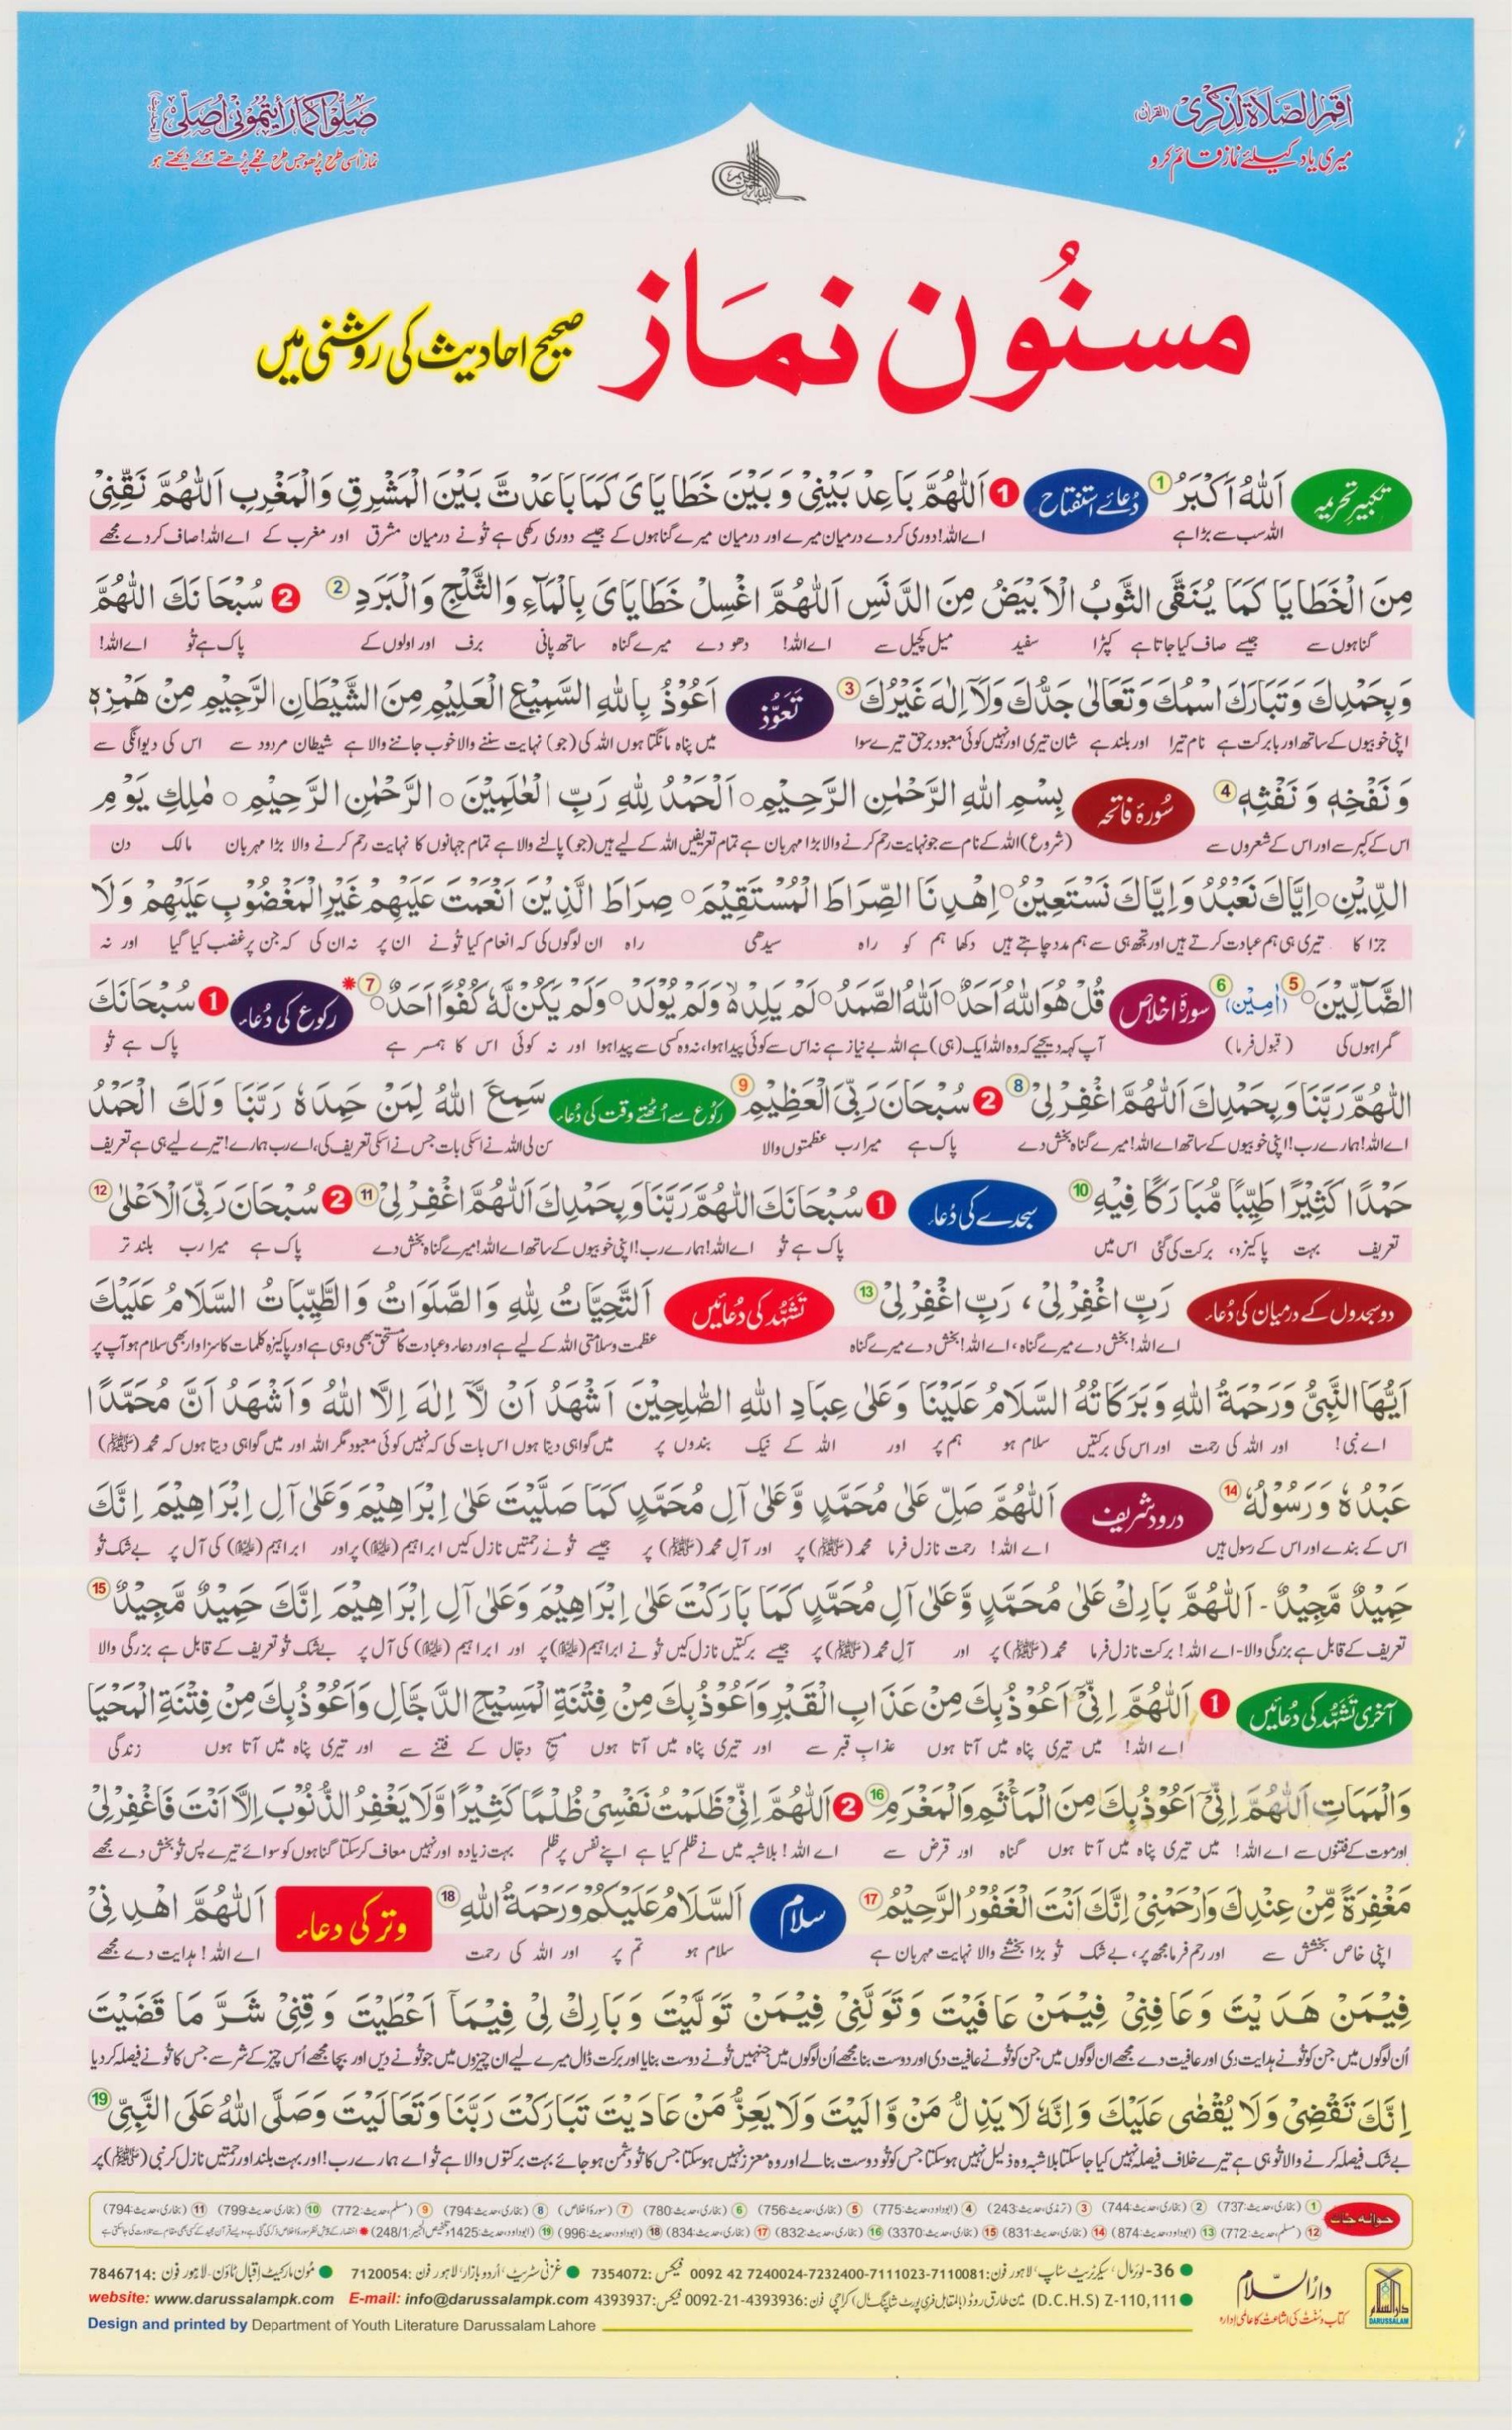 اَقِمِ الصَّلَاةَ لِذِكْرِىْ (القرآن)
میری یاد کیلئے نماز قائم کرو
صَلُّوْا كَمَا رَاَيْتُمُوْنِىْ اُصَلِّىْ
نماز اُسی طرح پڑھو جس طرح مجھے پڑھتے ہوئے دیکھتے ہو
مسنُون نمَاز
صحیح احادیث کی روشنی میں
تکبیرِ تحریمہ اَللّٰهُ اَكْبَرُ ① دُعائے استفتاح ❶ اَللّٰهُمَّ بَاعِدْ بَيْنِىْ وَ بَيْنَ خَطَايَاىَ كَمَا بَاعَدْتَّ بَيْنَ الْمَشْرِقِ وَالْمَغْرِبِ اَللّٰهُمَّ نَقِّنِىْ
اللہ سب سے بڑا ہے اے اللہ! دوری کر دے درمیان میرے اور درمیان میرے گناہوں کے جیسے دوری رکھی ہے تُو نے درمیان مشرق اور مغرب کے اے اللہ! صاف کر دے مجھے
مِنَ الْخَطَايَا كَمَا يُنَقَّى الثَّوْبُ الْاَبْيَضُ مِنَ الدَّنَسِ اَللّٰهُمَّ اغْسِلْ خَطَايَاىَ بِالْمَآءِ وَالثَّلْجِ وَالْبَرَدِ ② ❷ سُبْحَانَكَ اللّٰهُمَّ
گناہوں سے جیسے صاف کیا جاتا ہے کپڑا سفید میل کچیل سے اے اللہ! دھو دے میرے گناہ ساتھ پانی برف اور اولوں کے پاک ہے تُو اے اللہ!
وَبِحَمْدِكَ وَتَبَارَكَ اسْمُكَ وَتَعَالٰى جَدُّكَ وَلَآ اِلٰهَ غَيْرُكَ ③ تَعَوُّذ اَعُوْذُ بِاللّٰهِ السَّمِيْعِ الْعَلِيْمِ مِنَ الشَّيْطَانِ الرَّجِيْمِ مِنْ هَمْزِهٖ
اپنی خوبیوں کے ساتھ اور بابرکت ہے نام تیرا اور بلند ہے شان تیری اور نہیں کوئی معبود برحق تیرے سوا میں پناہ مانگتا ہوں اللہ کی (جو) نہایت سننے والا خوب جاننے والا ہے شیطان مردود سے اس کی دیوانگی سے
وَ نَفْخِهٖ وَ نَفْثِهٖ ④ سُورۂ فاتحہ بِسْمِ اللّٰهِ الرَّحْمٰنِ الرَّحِيْمِ ○ اَلْحَمْدُ لِلّٰهِ رَبِّ الْعٰلَمِيْنَ ○ الرَّحْمٰنِ الرَّحِيْمِ ○ مٰلِكِ يَوْمِ
اس کے کبر سے اور اس کے شعروں سے (شروع) اللہ کے نام سے جو نہایت رحم کرنے والا بڑا مہربان ہے تمام تعریفیں اللہ کے لیے ہیں (جو) پالنے والا ہے تمام جہانوں کا نہایت رحم کرنے والا بڑا مہربان مالک دن
الدِّيْنِ ○ اِيَّاكَ نَعْبُدُ وَ اِيَّاكَ نَسْتَعِيْنُ ○ اِهْدِنَا الصِّرَاطَ الْمُسْتَقِيْمَ ○ صِرَاطَ الَّذِيْنَ اَنْعَمْتَ عَلَيْهِمْ غَيْرِ الْمَغْضُوْبِ عَلَيْهِمْ وَلَا
جزا کا تیری ہی ہم عبادت کرتے ہیں اور تجھ ہی سے ہم مدد چاہتے ہیں دکھا ہم کو راہ سیدھی راہ ان لوگوں کی کہ انعام کیا تُو نے ان پر نہ ان کی کہ جن پر غضب کیا گیا اور نہ
الضَّآلِّيْنَ ○ ⑤ (اٰمِيْن) ⑥ سورۂ اخلاص قُلْ هُوَ اللّٰهُ اَحَدٌ ○ اَللّٰهُ الصَّمَدُ ○ لَمْ يَلِدْ وَلَمْ يُوْلَدْ ○ وَلَمْ يَكُنْ لَّهٗ كُفُوًا اَحَدٌ ○ ⑦ * رکوع کی دُعاء ❶ سُبْحَانَكَ
گمراہوں کی (قبول فرما) آپ کہہ دیجیے کہ وہ اللہ ایک (ہی) ہے اللہ بے نیاز ہے نہ اس سے کوئی پیدا ہوا، نہ وہ کسی سے پیدا ہوا اور نہ کوئی اس کا ہمسر ہے پاک ہے تُو
اللّٰهُمَّ رَبَّنَا وَبِحَمْدِكَ اَللّٰهُمَّ اغْفِرْ لِىْ ⑧ ❷ سُبْحَانَ رَبِّىَ الْعَظِيْمِ ⑨ رکوع سے اُٹھتے وقت کی دُعاء سَمِعَ اللّٰهُ لِمَنْ حَمِدَهٗ رَبَّنَا وَلَكَ الْحَمْدُ
اے اللہ! ہمارے رب! اپنی خوبیوں کے ساتھ اے اللہ! میرے گناہ بخش دے پاک ہے میرا رب عظمتوں والا سن لی اللہ نے اسکی بات جس نے اسکی تعریف کی، اے رب ہمارے! تیرے لیے ہی ہے تعریف
حَمْدًا كَثِيْرًا طَيِّبًا مُّبَارَكًا فِيْهِ ⑩ سجدے کی دُعاء ❶ سُبْحَانَكَ اللّٰهُمَّ رَبَّنَا وَبِحَمْدِكَ اَللّٰهُمَّ اغْفِرْ لِىْ ⑪ ❷ سُبْحَانَ رَبِّىَ الْاَعْلٰى ⑫
تعریف بہت پاکیزہ، برکت کی گئی اس میں پاک ہے تُو اے اللہ! ہمارے رب! اپنی خوبیوں کے ساتھ اے اللہ! میرے گناہ بخش دے پاک ہے میرا رب بلند تر
دو سجدوں کے درمیان کی دُعاء رَبِّ اغْفِرْ لِىْ، رَبِّ اغْفِرْ لِىْ ⑬ تشہّد کی دُعائیں اَلتَّحِيَّاتُ لِلّٰهِ وَالصَّلَوَاتُ وَالطَّيِّبَاتُ السَّلَامُ عَلَيْكَ
اے اللہ! بخش دے میرے گناہ، اے اللہ! بخش دے میرے گناہ عظمت و سلامتی اللہ کے لیے ہے اور دعاء و عبادت کا مستحق بھی وہی ہے اور پاکیزہ کلمات کا سزاوار بھی سلام ہو آپ پر
اَيُّهَا النَّبِىُّ وَرَحْمَةُ اللّٰهِ وَبَرَكَاتُهُ السَّلَامُ عَلَيْنَا وَعَلٰى عِبَادِ اللّٰهِ الصّٰلِحِيْنَ اَشْهَدُ اَنْ لَّآ اِلٰهَ اِلَّا اللّٰهُ وَاَشْهَدُ اَنَّ مُحَمَّدًا
اے نبی! اور اللہ کی رحمت اور اس کی برکتیں سلام ہو ہم پر اور اللہ کے نیک بندوں پر میں گواہی دیتا ہوں اس بات کی کہ نہیں کوئی معبود مگر اللہ اور میں گواہی دیتا ہوں کہ محمد (ﷺ)
عَبْدُهٗ وَرَسُوْلُهٗ ⑭ درود شریف اَللّٰهُمَّ صَلِّ عَلٰى مُحَمَّدٍ وَّعَلٰى آلِ مُحَمَّدٍ كَمَا صَلَّيْتَ عَلٰى اِبْرَاهِيْمَ وَعَلٰى آلِ اِبْرَاهِيْمَ اِنَّكَ
اس کے بندے اور اس کے رسول ہیں اے اللہ! رحمت نازل فرما محمد (ﷺ) پر اور آلِ محمد (ﷺ) پر جیسے تُو نے رحمتیں نازل کیں ابراہیم (علیہ السلام) پر اور ابراہیم (علیہ السلام) کی آل پر بے شک تُو
حَمِيْدٌ مَّجِيْدٌ - اَللّٰهُمَّ بَارِكْ عَلٰى مُحَمَّدٍ وَّعَلٰى آلِ مُحَمَّدٍ كَمَا بَارَكْتَ عَلٰى اِبْرَاهِيْمَ وَعَلٰى آلِ اِبْرَاهِيْمَ اِنَّكَ حَمِيْدٌ مَّجِيْدٌ ⑮
تعریف کے قابل ہے بزرگی والا- اے اللہ! برکت نازل فرما محمد (ﷺ) پر اور آلِ محمد (ﷺ) پر جیسے برکتیں نازل کیں تُو نے ابراہیم (علیہ السلام) پر اور ابراہیم (علیہ السلام) کی آل پر بے شک تُو تعریف کے قابل ہے بزرگی والا
آخری تشہّد کی دُعائیں ❶ اَللّٰهُمَّ اِنِّىْٓ اَعُوْذُ بِكَ مِنْ عَذَابِ الْقَبْرِ وَاَعُوْذُ بِكَ مِنْ فِتْنَةِ الْمَسِيْحِ الدَّجَّالِ وَاَعُوْذُ بِكَ مِنْ فِتْنَةِ الْمَحْيَا
اے اللہ! میں تیری پناہ میں آتا ہوں عذابِ قبر سے اور تیری پناہ میں آتا ہوں مسیح دجّال کے فتنے سے اور تیری پناہ میں آتا ہوں زندگی
وَالْمَمَاتِ اَللّٰهُمَّ اِنِّىْٓ اَعُوْذُ بِكَ مِنَ الْمَأْثَمِ وَالْمَغْرَمِ ⑯ ❷ اَللّٰهُمَّ اِنِّىْ ظَلَمْتُ نَفْسِىْ ظُلْمًا كَثِيْرًا وَّلَا يَغْفِرُ الذُّنُوْبَ اِلَّا اَنْتَ فَاغْفِرْ لِىْ
اور موت کے فتنوں سے اے اللہ! میں تیری پناہ میں آتا ہوں گناہ اور قرض سے اے اللہ! بلاشبہ میں نے ظلم کیا ہے اپنے نفس پر ظلم بہت زیادہ اور نہیں معاف کر سکتا گناہوں کو سوائے تیرے پس تُو بخش دے مجھے
مَغْفِرَةً مِّنْ عِنْدِكَ وَارْحَمْنِىْ اِنَّكَ اَنْتَ الْغَفُوْرُ الرَّحِيْمُ ⑰ سلام اَلسَّلَامُ عَلَيْكُمْ وَرَحْمَةُ اللّٰهِ ⑱ وتر کی دعاء اَللّٰهُمَّ اهْدِنِىْ
اپنی خاص بخشش سے اور رحم فرما مجھ پر، بے شک تُو بڑا بخشنے والا نہایت مہربان ہے سلام ہو تم پر اور اللہ کی رحمت اے اللہ! ہدایت دے مجھے
فِيْمَنْ هَدَيْتَ وَعَافِنِىْ فِيْمَنْ عَافَيْتَ وَتَوَلَّنِىْ فِيْمَنْ تَوَلَّيْتَ وَبَارِكْ لِىْ فِيْمَآ اَعْطَيْتَ وَقِنِىْ شَرَّ مَا قَضَيْتَ
اُن لوگوں میں جن کو تُو نے ہدایت دی اور عافیت دے مجھے ان لوگوں میں جن کو تُو نے عافیت دی اور دوست بنا مجھے اُن لوگوں میں جنہیں تُو نے دوست بنایا اور برکت ڈال میرے لیے ان چیزوں میں جو تُو نے دیں اور بچا مجھے اُس چیز کے شر سے جس کا تُو نے فیصلہ کر دیا
اِنَّكَ تَقْضِىْ وَلَا يُقْضٰى عَلَيْكَ وَاِنَّهٗ لَا يَذِلُّ مَنْ وَّالَيْتَ وَلَا يَعِزُّ مَنْ عَادَيْتَ تَبَارَكْتَ رَبَّنَا وَتَعَالَيْتَ وَصَلَّى اللّٰهُ عَلَى النَّبِىِّ ⑲
بے شک فیصلہ کرنے والا تُو ہی ہے تیرے خلاف فیصلہ نہیں کیا جا سکتا بلاشبہ وہ ذلیل نہیں ہو سکتا جس کو تُو دوست بنا لے اور وہ معزز نہیں ہو سکتا جس کا تُو دشمن ہو جائے بہت برکتوں والا ہے تُو اے ہمارے رب! اور بہت بلند اور رحمتیں نازل کر نبی (ﷺ) پر
حوالہ جات ① (بخاری،حدیث:737) ② (بخاری،حدیث:744) ③ (ترمذی،حدیث:243) ④ (ابوداود،حدیث:775) ⑤ (بخاری،حدیث:756) ⑥ (بخاری،حدیث:780) ⑦ (سورۂ اخلاص) ⑧ (بخاری،حدیث:794) ⑨ (مسلم،حدیث:772) ⑩ (بخاری،حدیث:799) ⑪ (بخاری،حدیث:794)
⑫ (مسلم،حدیث:772) ⑬ (ابوداود،حدیث:874) ⑭ (بخاری،حدیث:831) ⑮ (بخاری،حدیث:3370) ⑯ (بخاری،حدیث:832) ⑰ (بخاری،حدیث:834) ⑱ (ابوداود،حدیث:996) ⑲ (ابوداود،حدیث:1425 وتلخیص الحبیر:248/1)
● 36-لوئرمال، سیکرٹریٹ سٹاپ، لاہور فون: 0092 42 7240024-7232400-7111023-7110081 فیکس: 7354072 ● غزنی سٹریٹ، اُردو بازار، لاہور فون: 7120054 ● مُون مارکیٹ اقبال ٹاؤن۔لاہور فون: 7846714
● (D.C.H.S) Z-110,111 مین طارق روڈ (بالمقابل فری پورٹ شاپنگ مال) کراچی فون: 0092-21-4393936 فیکس: 4393937 E-mail: info@darussalampk.com website: www.darussalampk.com
Design and printed by Department of Youth Literature Darussalam Lahore
دارالسلام
کتاب و سنّت کی اشاعت کا عالمی ادارہ
دارالسلام
DARUSSALAM